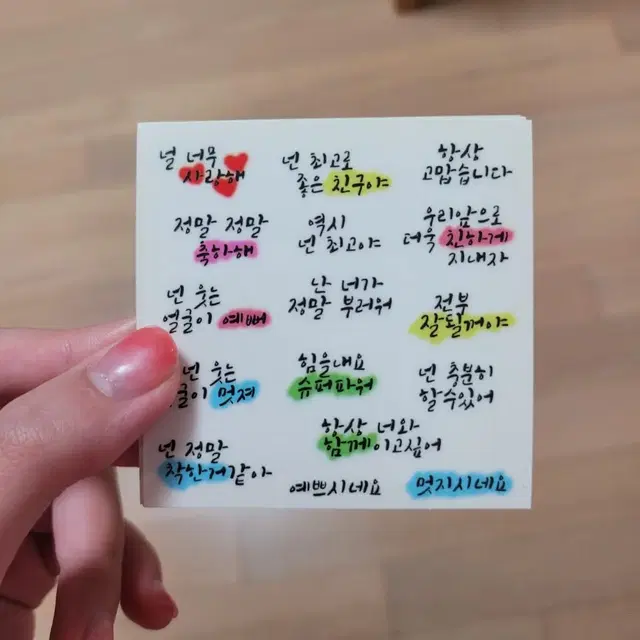 널 너무
사랑해
넌 최고로
좋은 친구야
항상
고맙습니다
정말 정말
축하해
역시
넌 최고야
우리앞으로
더욱 친하게
지내자
넌 웃는
얼굴이 예뻐
난 너가
정말 부러워
전부
잘될꺼야
넌 웃는
굴이 멋져
힘을내요
슈퍼파워
넌 충분히
할수있어
넌 정말
착한거같아
항상 너와
함께이고싶어
예쁘시네요
멋지시네요